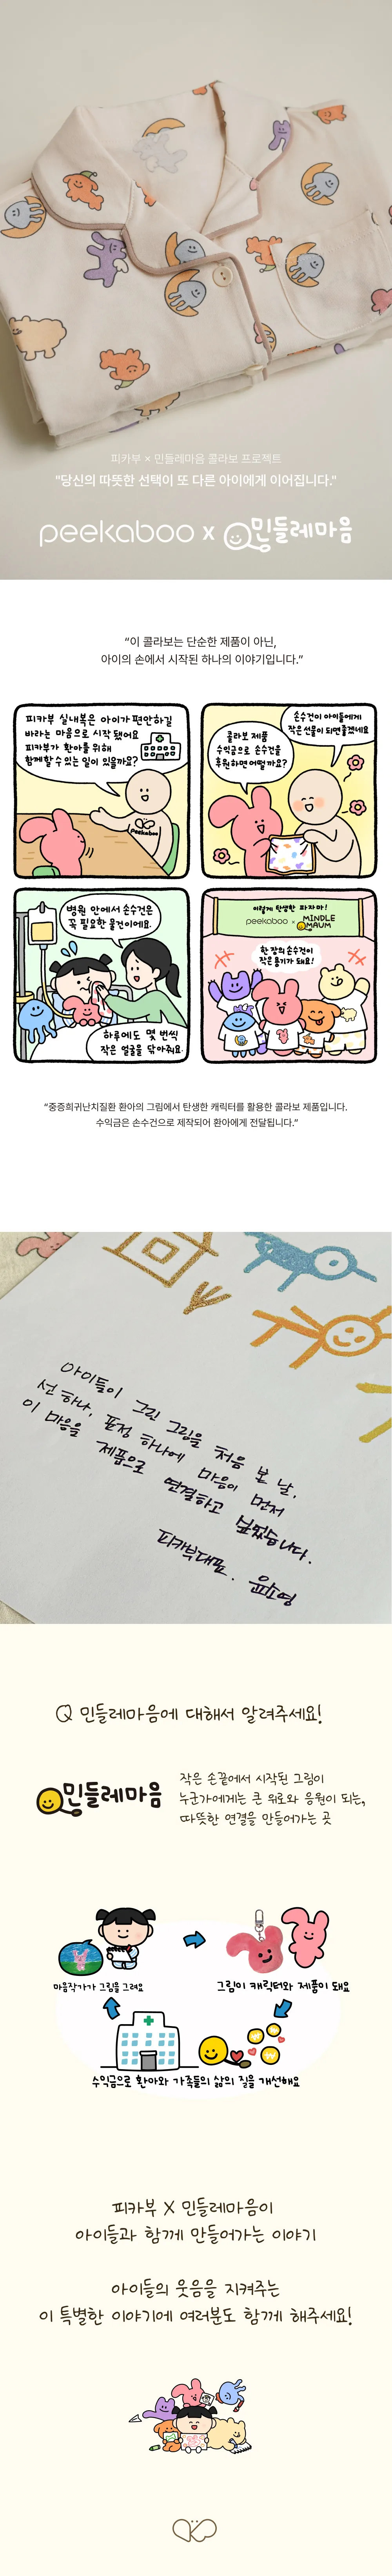 피카부 × 민들레마음 콜라보 프로젝트
"당신의 따뜻한 선택이 또 다른 아이에게 이어집니다."
peekaboo x 민들레마음
“이 콜라보는 단순한 제품이 아닌,
아이의 손에서 시작된 하나의 이야기입니다.”
피카부 실내복은 아이가 편안하길
바라는 마음으로 시작 됐어요
피카부가 환아를 위해
함께할 수 있는 일이 있을까요?
Peekaboo
콜라보 제품
수익금으로 손수건을
후원하면 어떨까요?
손수건이 아이들에게
작은선물이 되면좋겠네요
병원 안에서 손수건은
꼭 필요한 물건이에요.
하루에도 몇 번씩
작은 얼굴을 닦아줘요
이렇게 탄생한 파자마!
peekaboo × MINDLE MAUM
한 장의 손수건이
작은 용기가 돼요!
“중증희귀난치질환 환아의 그림에서 탄생한 캐릭터를 활용한 콜라보 제품입니다.
수익금은 손수건으로 제작되어 환아에게 전달됩니다.”
아이들이 그린 그림을 처음 본 날,
선 하나, 표정 하나에 마음이 먼저
이 마음을 제품으로 연결하고 싶었습니다.
피카부대표. 윤소영
Q 민들레마음에 대해서 알려주세요!
민들레마음
작은 손끝에서 시작된 그림이
누군가에게는 큰 위로와 응원이 되는,
따뜻한 연결을 만들어가는 곳
마음작가가 그림을 그려요
그림이 캐릭터와 제품이 돼요
수익금으로 환아와 가족들의 삶의 질을 개선해요
피카부 X 민들레마음이
아이들과 함께 만들어가는 이야기
아이들의 웃음을 지켜주는
이 특별한 이야기에 여러분도 함께 해주세요!